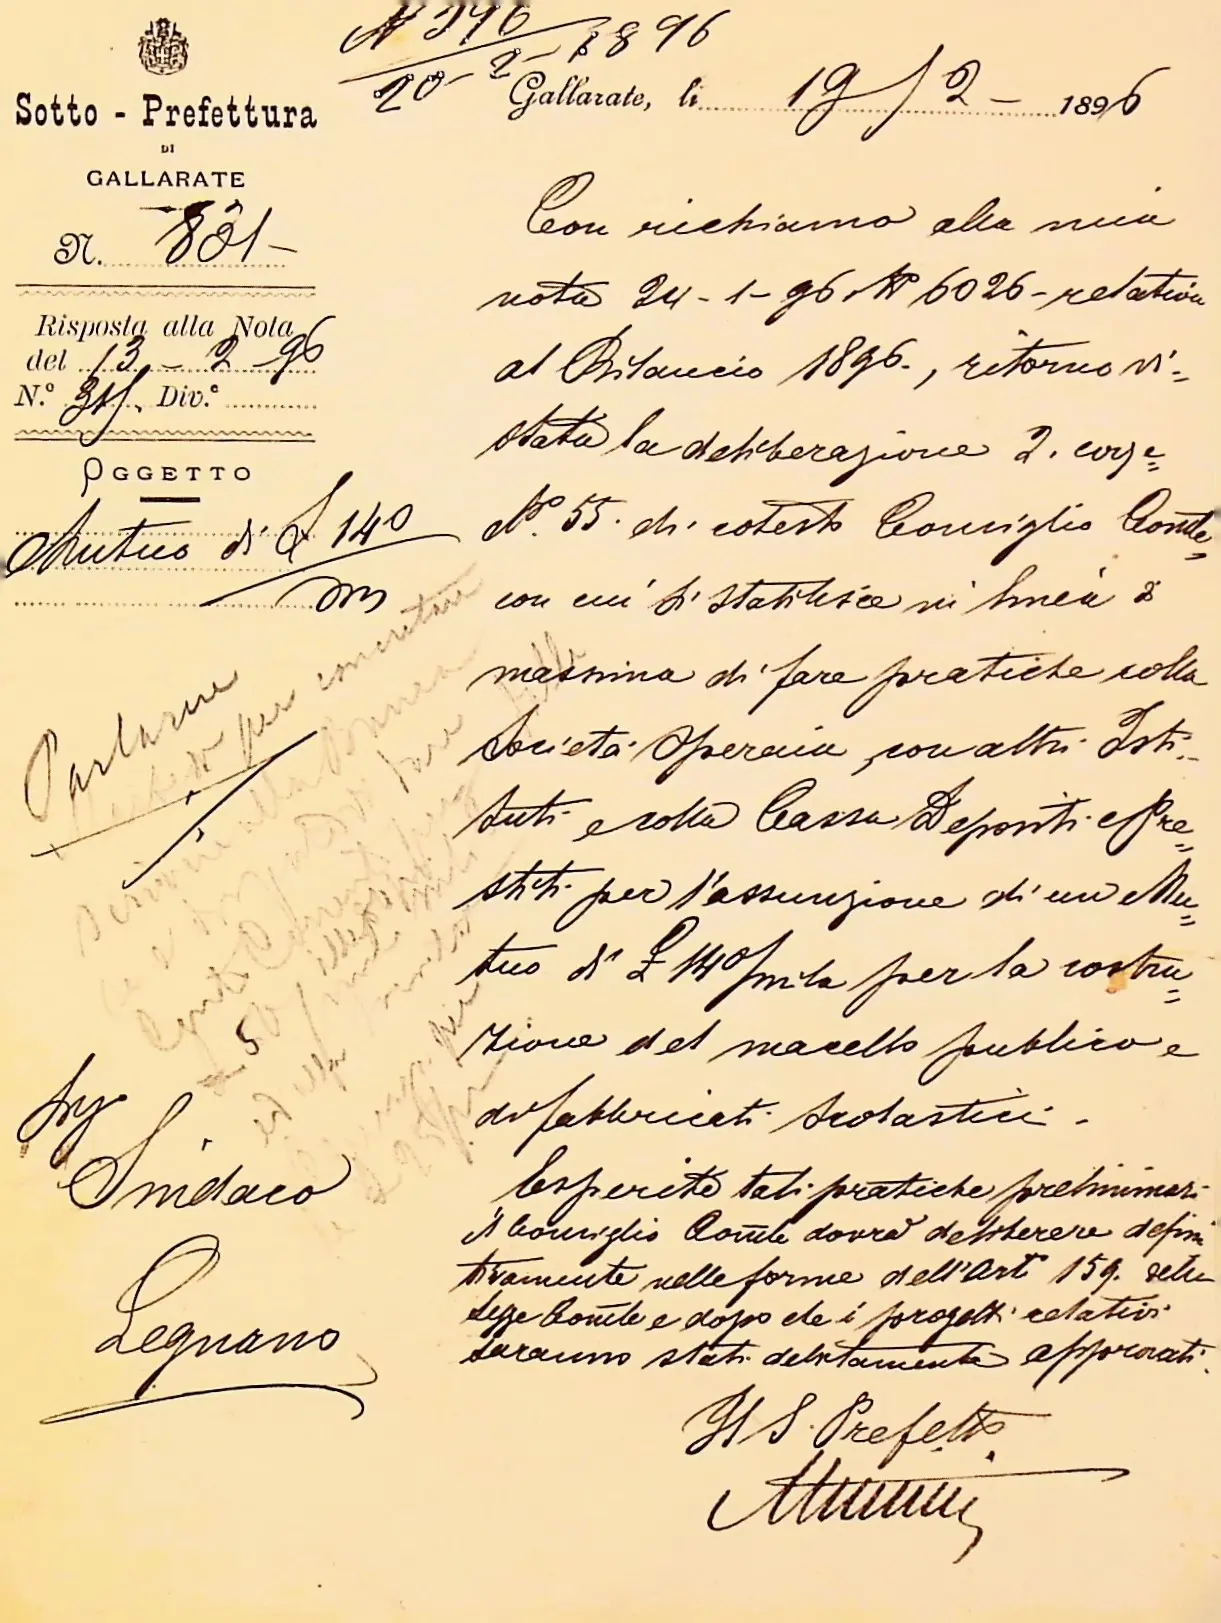 N 396
20-2-1896
Sotto - Prefettura
DI
GALLARATE
N. 831-
Risposta alla Nota
del 13-2-96
N.º 315. Div.e
OGGETTO
Mutuo di £ 140
m
Parlarne
per concretare
50
Sig
Sindaco
Legnano
Gallarate, li 19/2-1896
Con richiamo alla mia
nota 24-1-96 Nº 6026- relativa
al Bilancio 1896., ritorno vi=
stata la deliberazione 2. corre=
Nº. 55. di cotesto Consiglio Comle=
con cui si stabilisce in linea di
massima di fare pratiche colla
Società Operaia, con altri Isti..
tuti e colla Cassa Depositi e Pre=
stiti per l'assunzione di un Mu=
tuo di £ 140/mila per la costru=
zione del macello pubblico e
di fabbricati scolastici.
Esperite tali pratiche preliminari
il Consiglio Comle dovrà deliberere defini
tivamente nelle forme dell'Art 159. della
Legge Comle e dopo che i progetti relativi
saranno stati debitamente approvati.
Il S. Prefetto